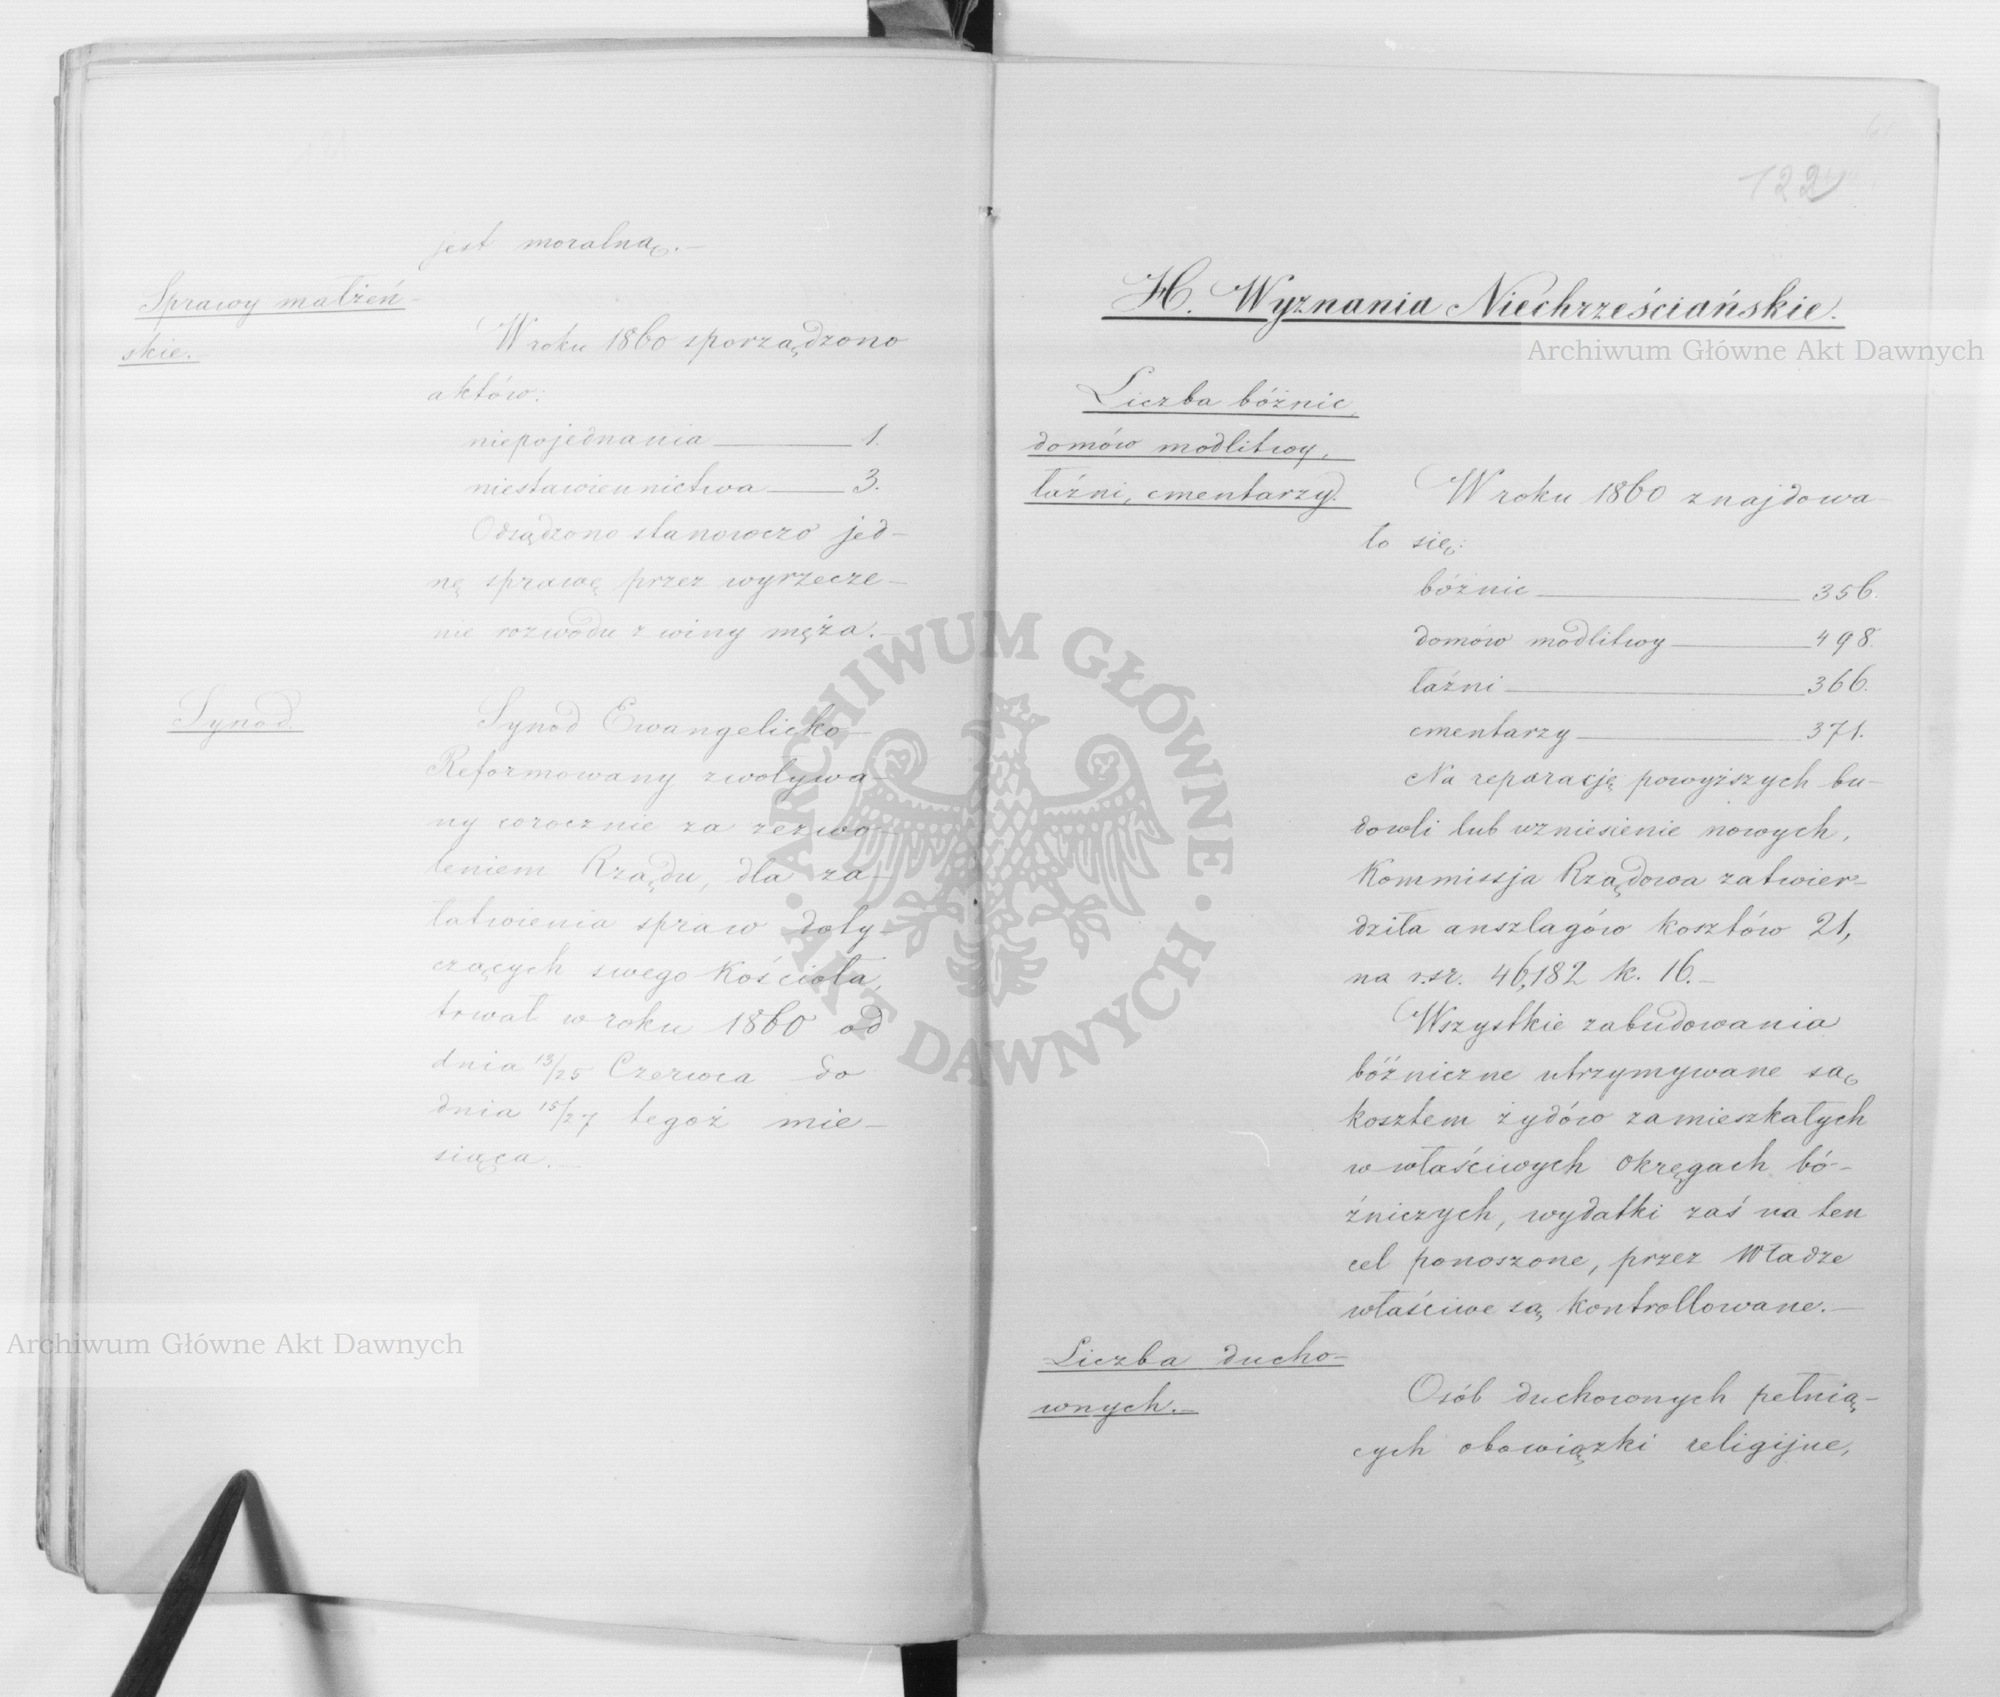 jest moralną.—
Sprawy małżeń-
skie.
W roku 1860 sporządzono
aktów:
niepojednania 1.
niestawiennictwa 3.
Osądzono stanowczo jed-
nę sprawę przez wyrzecze-
nie rozwodu z winy męża.—
Synod.
Synod Ewangelicko-
Reformowany zwoływa-
ny corocznie za zezwo-
leniem Rządu, dla za-
łatwienia spraw doty-
czących swego Kościoła,
trwał w roku 1860 od
dnia 13/25 Czerwca do
dnia 15/27 tegoż mie-
siąca.—
122
H. Wyznania Niechrześciańskie.
Liczba bóżnic,
domów modlitwy,
łaźni, cmentarzy.
W roku 1860 znajdowa
ło się:
bóżnic 356.
domów modlitwy 498.
łaźni 366.
cmentarzy 371.
Na reparację powyższych bu-
dowli lub wzniesienie nowych,
Kommissja Rządowa zatwier-
dziła anszlagów kosztów 21,
na rsr. 46,182 k. 16.—
Wszystkie zabudowania
bóżniczne utrzymywane są
kosztem żydów zamieszkałych
w właściwych okręgach bó-
źniczych, wydatki zaś na ten
cel ponoszone, przez Władze
właściwe są kontrollowane.—
Liczba ducho-
wnych.—
Osób duchownych pełnią-
cych obowiązki religijne,
Archiwum Główne Akt Dawnych
Archiwum Główne Akt Dawnych
ARCHIWUM GŁÓWNE · AKT DAWNYCH ·